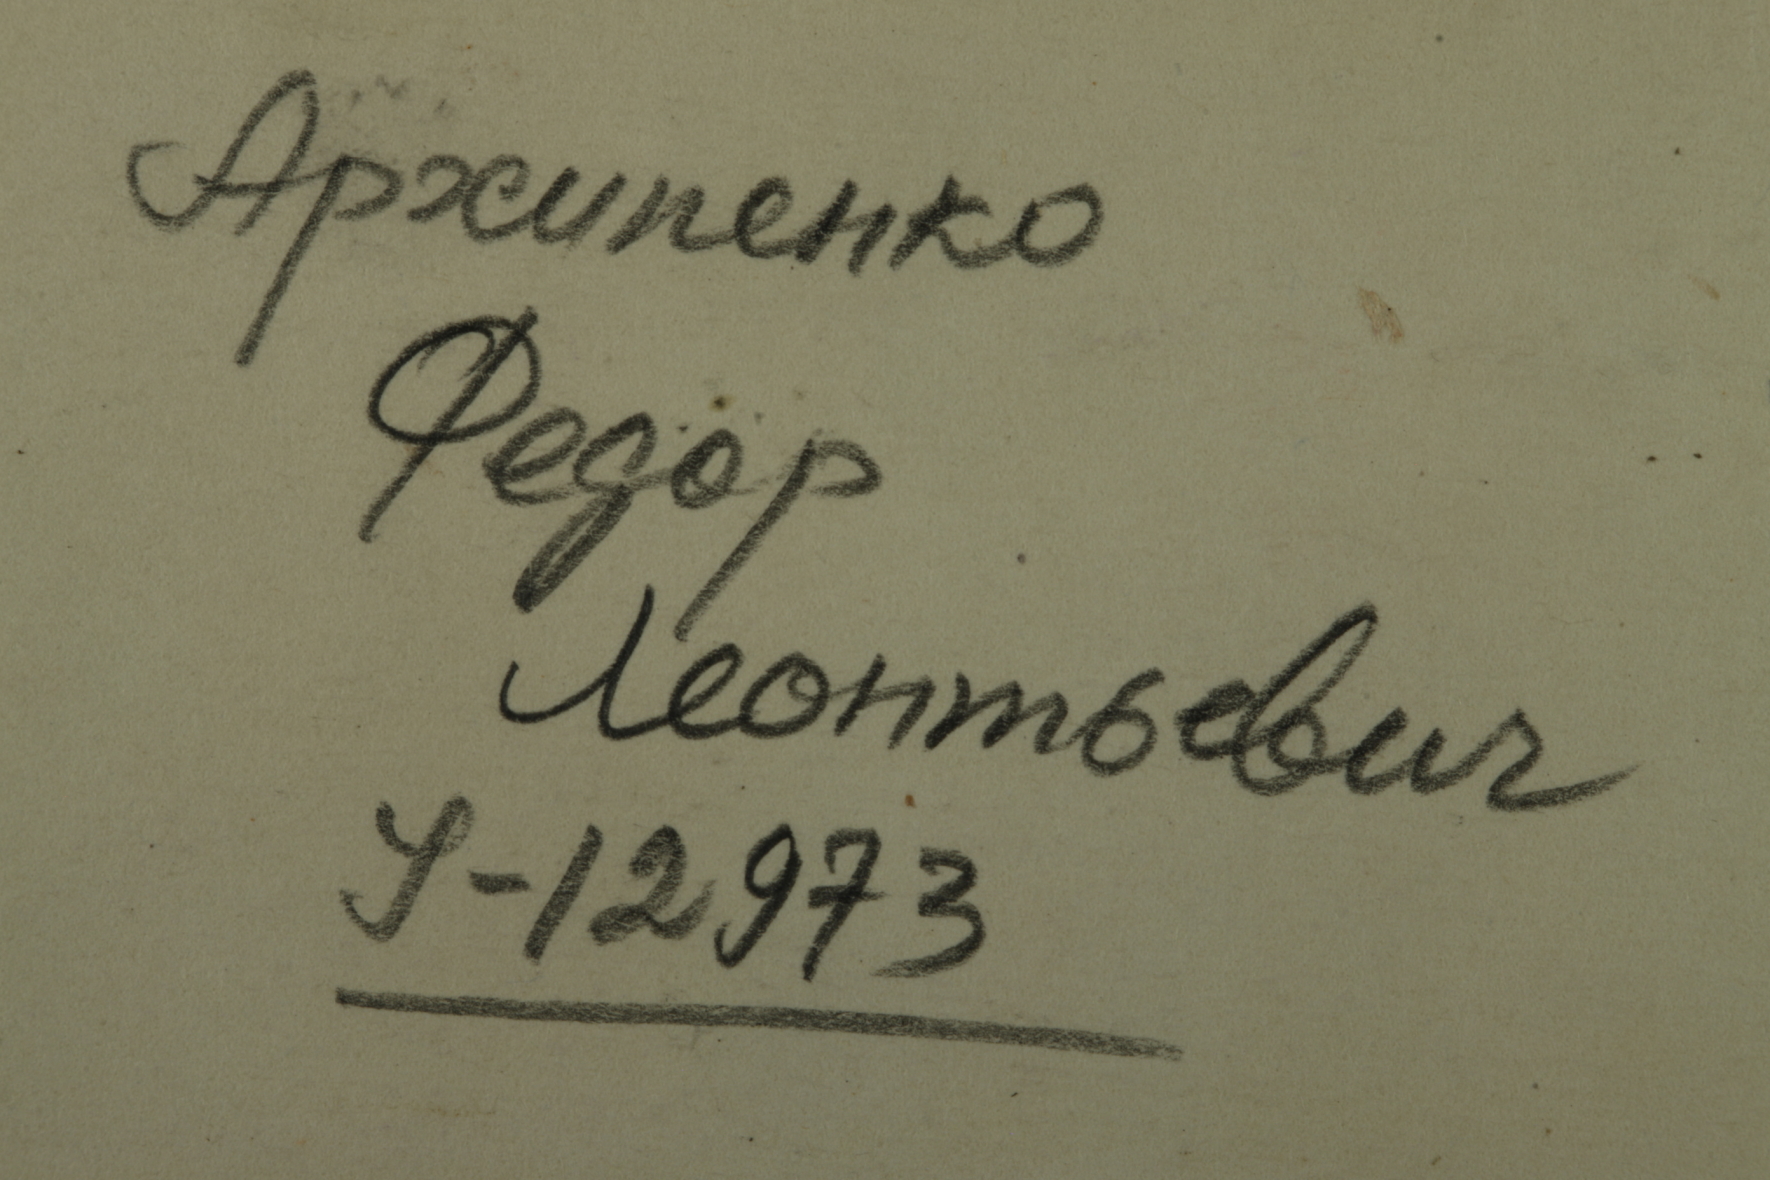 Архипенко
Федор
Леонтьевич
У-12973